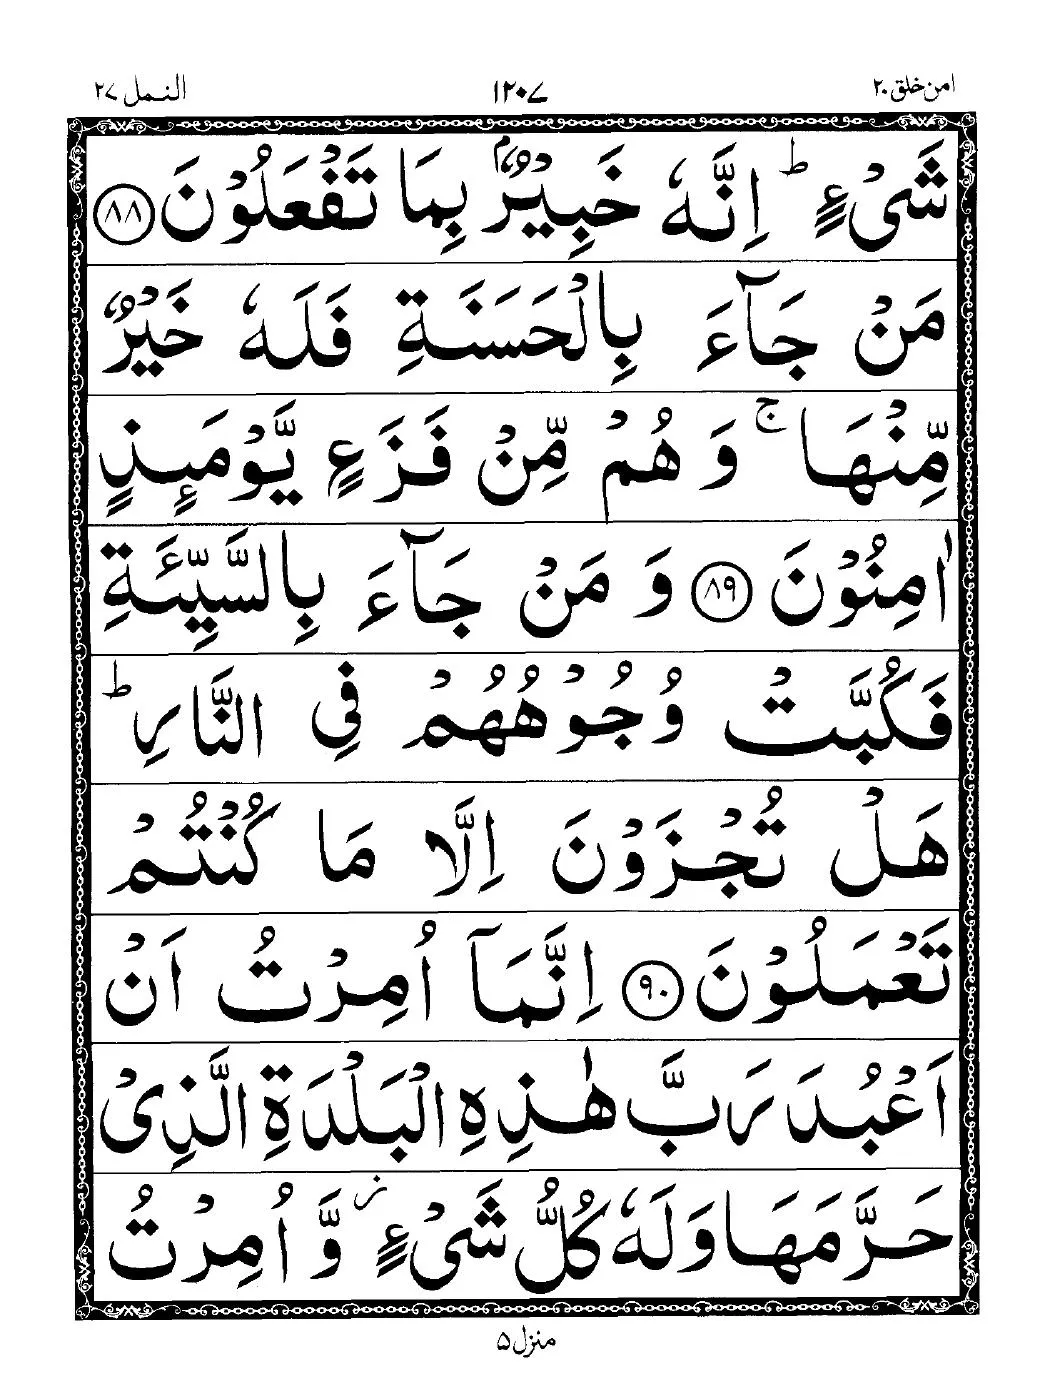 امن خلق ۲۰ ۱۲۰۷ النمل ۲۷
شَیْءٍ ؕ اِنَّهٗ خَبِیْرٌۢ بِمَا تَفْعَلُوْنَ ﴿۸۸﴾
مَنْ جَآءَ بِالْحَسَنَةِ فَلَهٗ خَیْرٌ
مِّنْهَا ۚ وَهُمْ مِّنْ فَزَعٍ یَّوْمَىِٕذٍ
اٰمِنُوْنَ ﴿۸۹﴾ وَ مَنْ جَآءَ بِالسَّیِّئَةِ
فَكُبَّتْ وُجُوْهُهُمْ فِی النَّارِ ؕ
هَلْ تُجْزَوْنَ اِلَّا مَا كُنْتُمْ
تَعْمَلُوْنَ ﴿۹۰﴾ اِنَّمَاۤ اُمِرْتُ اَنْ
اَعْبُدَ رَبَّ هٰذِهِ الْبَلْدَةِ الَّذِیْ
حَرَّمَهَا وَلَهٗ كُلُّ شَیْءٍ ؗ وَّ اُمِرْتُ
منزل ۵